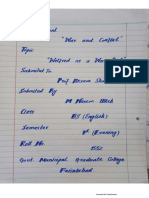 "War and Conflict"
Topic
"Wilfred as a War Poet"
Submitted To
Prof.
Submitted By
M Naeem
Class
BS (English)
Semester
(Evening)
Roll No.
1552
Govt. Municipal Graduate College
Faisalabad